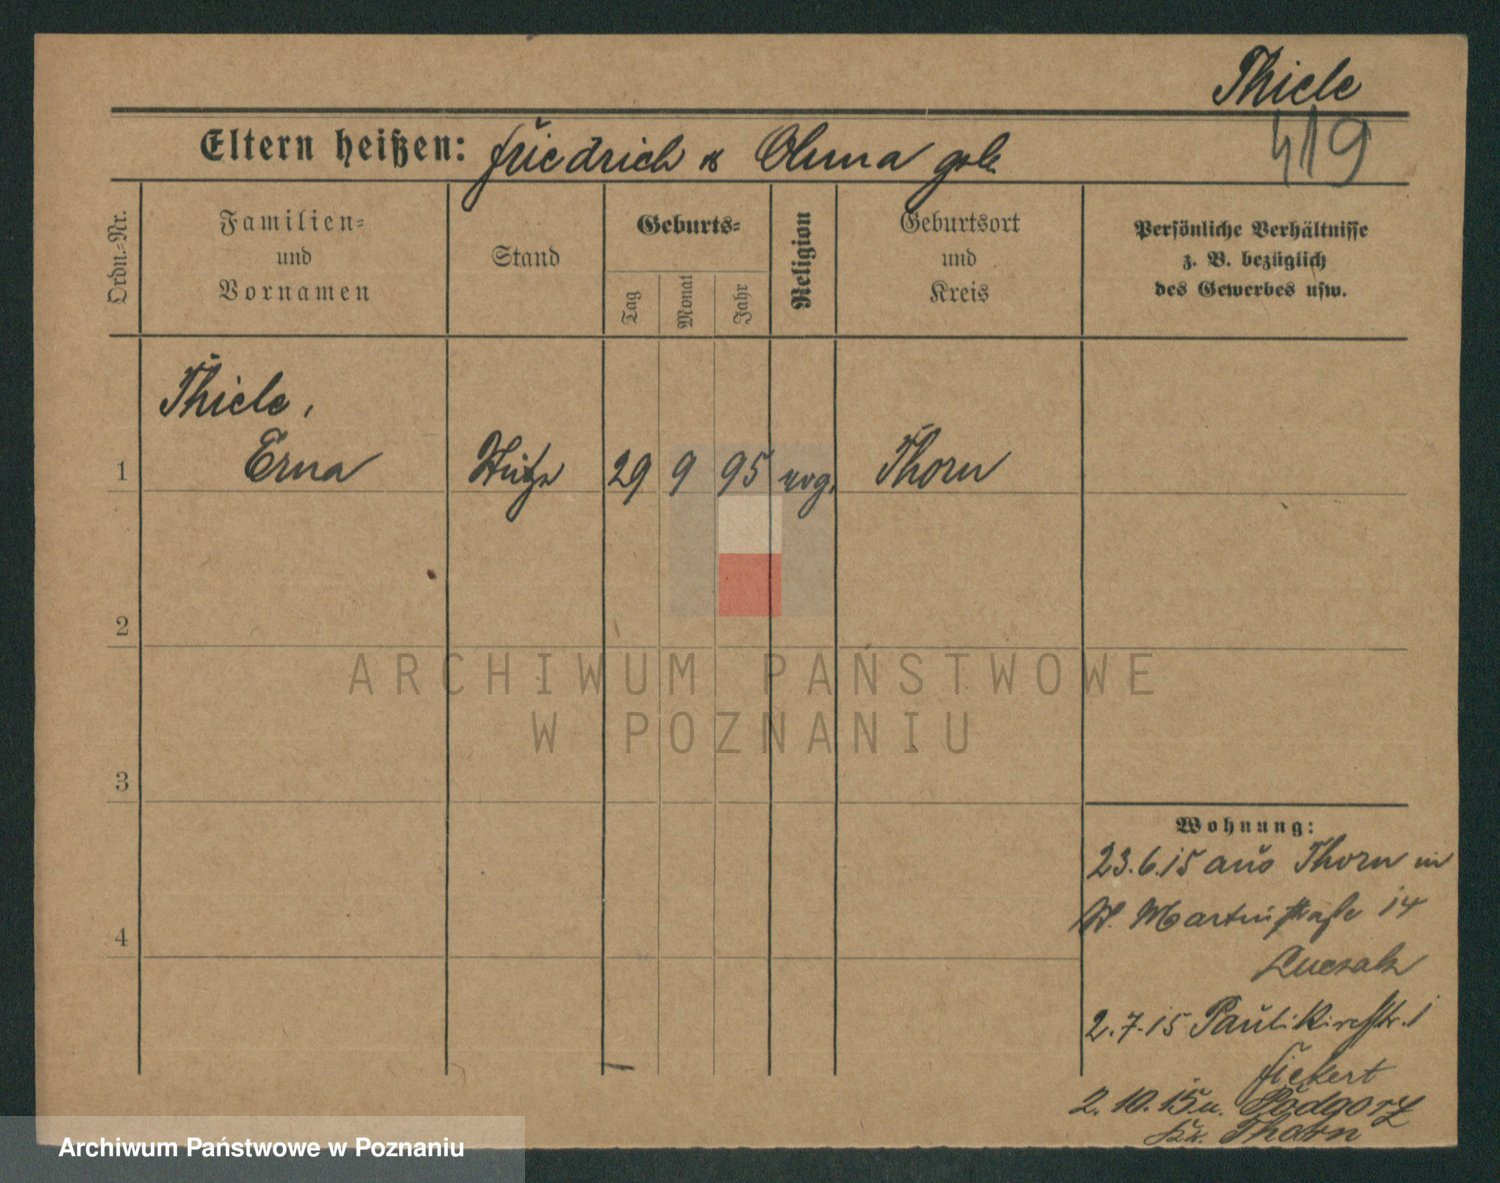 Thiele
419
Eltern heißen: Friedrich u geb.
Ordn.-Nr.
Familien-
und
Vornamen
Stand
Geburts-
Tag
Monat
Jahr
Religion
Geburtsort
und
Kreis
Persönliche Verhältnisse
z. B. bezüglich
des Gewerbes usw.
Thiele,
1 Erna Stütze 29 9 95 evg. Thorn
2
3
4
ARCHIWUM PAŃSTWOWE
W POZNANIU
Wohnung:
23.6.15 aus Thorn in
St. Martinstraße 14
2.7.15 Paulikirchstr. 1
Fickert
2.10.15 n. Podgorz
Kr. Thorn
Archiwum Państwowe w Poznaniu